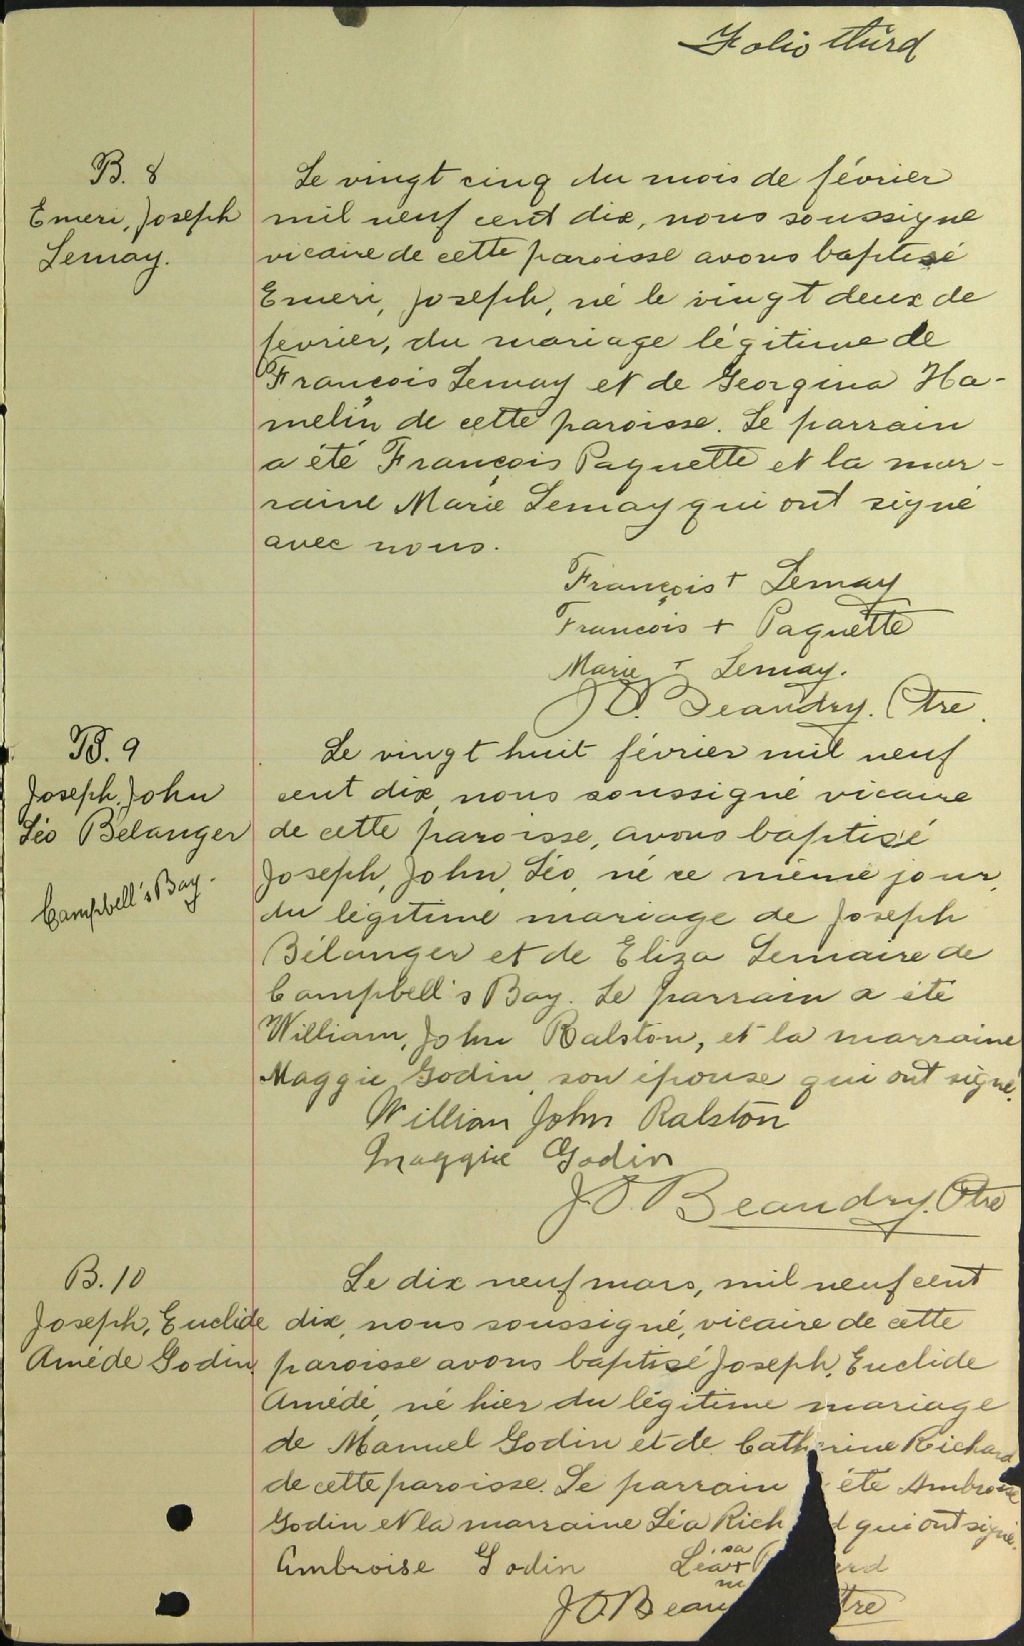 Folio third
B. 8
Emeri, Joseph
Lemay.
Le vingt cinq du mois de février
mil neuf cent dix, nous soussigne
vicaire de cette paroisse avons baptisé
Emeri, Joseph, né le vingt deux de
fevrier, du mariage légitime de
François Lemay et de Georgina Ha-
melin de cette paroisse. Le parrain
a été François Paquette et la mar-
raine Marie Lemay qui ont signé
avec nous.
François + Lemay
François + Paquette
Marie + Lemay.
J O. Beaudry. Ptre.
B. 9
Joseph, John
Léo Bélanger
Campbell's Bay.
Le vingt huit février mil neuf
cent dix, nous soussigné vicaire
de cette paroisse, avons baptisé
Joseph, John, Léo, né ce même jour,
du légitime mariage de Joseph
Bélanger et de Eliza Lemaire de
Campbell's Bay. Le parrain a été
William, John Ralston, et la marraine
Maggie Godin, son épouse qui ont signé.
William John Ralston
Maggie Godin
J. O. Beaudry. Ptre
B. 10
Joseph, Euclide
Amédé Godin.
Le dix neuf mars, mil neuf cent
dix, nous soussigné, vicaire de cette
paroisse avons baptisé Joseph, Euclide
Amédé, né hier du légitime mariage
de Manuel Godin et de Catherine Richard
de cette paroisse. Le parrain été Ambroise
Godin et la marraine Léa Rich d qui ont signé.
Ambroise Godin Léa sa + m R rd
J O Beau tre